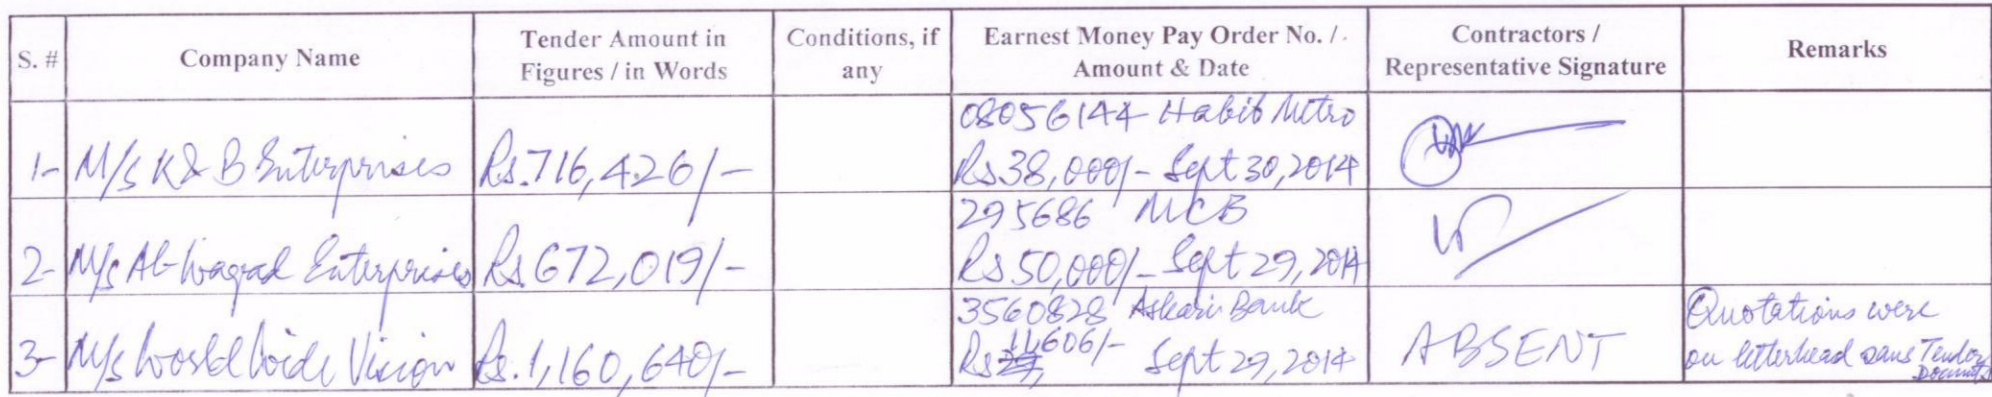 S. #
Company Name
Tender Amount in
Figures / in Words
Conditions, if
any
Earnest Money Pay Order No. /
Amount & Date
Contractors /
Representative Signature
Remarks
1- M/s K&B Enterprises Rs.716,426/-
08056144 Habib Metro
Rs 38,000/- Sept 30, 2014
2- M/s Al-Waqad Enterprises Rs.672,019/-
295686 MCB
Rs 50,000/- Sept 29, 2014
3- M/s World Wide Vision Rs.1,160,640/-
3560828 Askari Bank
Rs 11,606/- Sept 29, 2014
ABSENT
Quotations were
on letterhead sans Tender
Documents